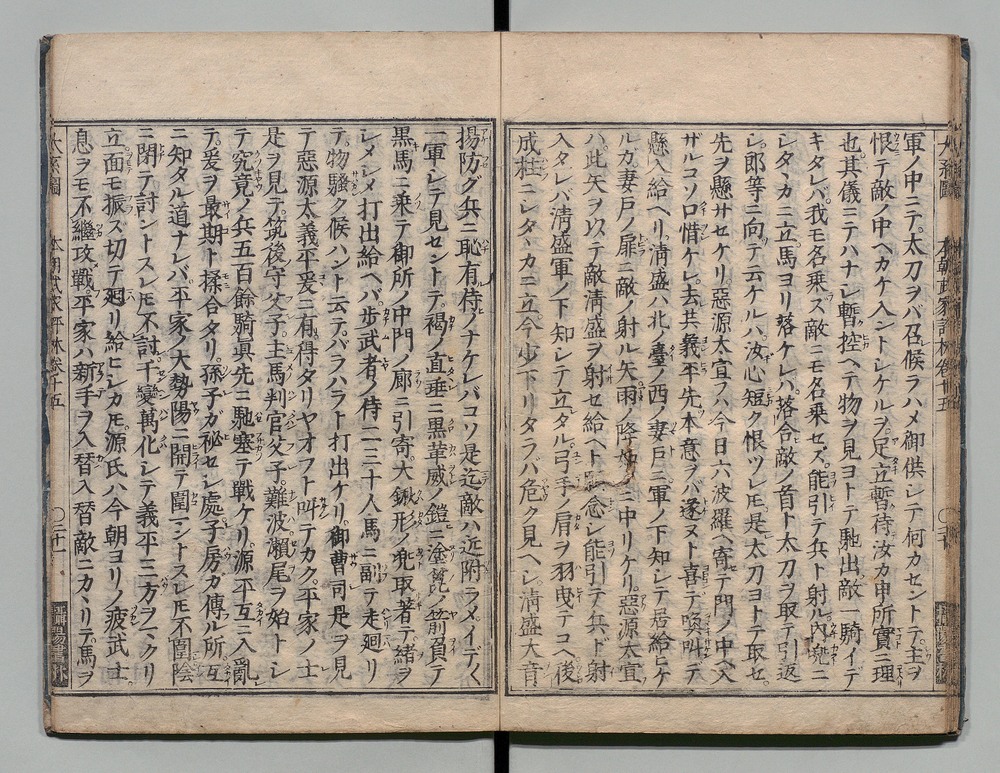 軍ノ中ニテ太刀ヲバ召候ラハメ御供シテ何カセントテ主ヲ
恨テ敵ノ中ヘカケ入ントシケルヲ足立暫待汝カ申所實ニ理
也其儀ニテハナシ暫控ヘテ物ヲ見ヨトテ馳出敵一騎イデ
キタレバ我モ名乗ス敵ニモ名乗セズ能引テ兵ト射ル内ニ
シタヽカニ立馬ヨリ落ケレバ落合敵ノ首ト太刀ヲ取テ引返
シ郎等ニ向テ云ケルハ汝心短ク恨ツレ𪜈是太刀ヨトテ取セ
先ヲ懸サセケリ惡源太宣フハ今日六波羅ヘ寄テ門ノ中ヘ入
ザルコソ口惜ケレ去共義平先本意ヲバ遂ヌト喜テ喚叫デ
懸入給ヘリ清盛ハ北ノ臺ノ西ノ妻戸ニ軍ノ下知シテ居給ヒケ
ルガ妻戸ノ扉ニ敵ノ射ル矢雨ノ降如ニ中リケリ惡源太宣
ハ此矢ヲ以テ敵清盛ヲ射セ給ヘト念シ能引テ兵ド射
入タレバ清盛軍ノ下知シテ立タル弓手ノ肩ヲ羽曳テコヘ後
成柱ニシタヽカニ立今少下リタラバ危ク見ヘシ清盛大音
揚防グ兵ニ恥有侍ノナケレバコソ是迄敵ハ近附ラメイデ〱
一軍シテ見セントテ褐ノ直垂ニ黒革威ノ鎧ニ塗箆ノ箭負テ
黒馬ニ乗テ御所ノ中門ノ廊ニ引寄大鍬形ノ兜取著テ緒ヲ
シメ〆打出給ヘバ歩武者ノ侍二三十人馬ニ副テ走廻リ
テ物騒ク候ハント云テバラハラト打出ケリ御曹司是ヲ見
テ惡源太義平爰ニ有得タリヤオフト叫テカク平家ノ士
是ヲ見テ筑後守父子主馬判官父子難波瀬尾ヲ始トシ
テ究竟ノ兵五百餘騎眞先ニ馳塞テ戰ケリ源平互ニ入亂
テ爰ヲ最期ト揉合タリ孫子ガ秘セシ處子房ガ傳ル所互
ニ知タル道ナレバ平家ノ大勢陽ニ開テ圍ントスレ𪜈不圍陰
ニ閉テ討ントスレ𪜈不討千變萬化シテ義平三方ヲマクリ
立面モ振ズ切テ廻リ給ヒシカ𪜈源氏ハ今朝ヨリノ疲武士
息ヲモ不繼攻戰平家ハ新手ヲ入替入替敵ニカヽリテ馬ヲ
大系圖 本朝武家評林巻十五 〇三十一